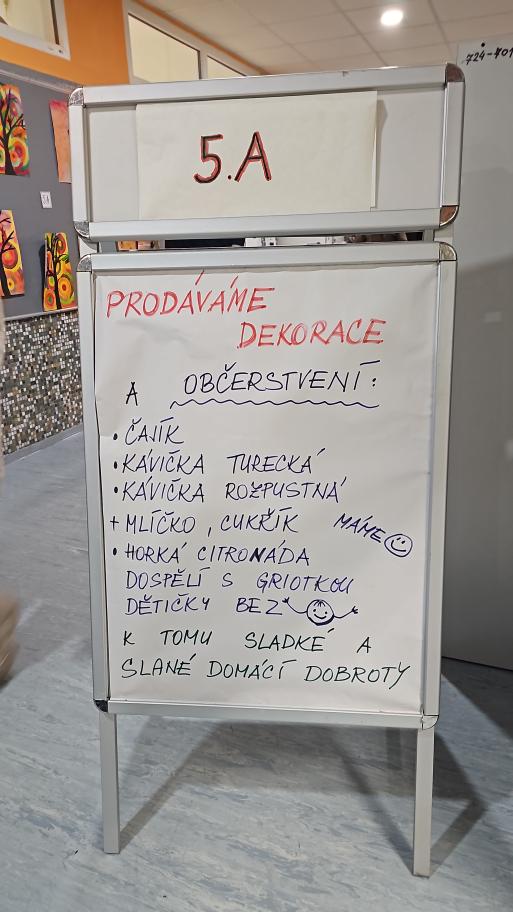 724-701
5.A
PRODÁVÁME
DEKORACE
A OBČERSTVENÍ:
• ČAJÍK
• KÁVIČKA TURECKÁ
• KÁVIČKA ROZPUSTNÁ
+ MLÍČKO, CUKŘÍK MÁME
• HORKÁ CITRONÁDA
DOSPĚLÍ S GRIOTKOU
DĚTIČKY BEZ
K TOMU SLADKÉ A
SLANÉ DOMÁCÍ DOBROTY